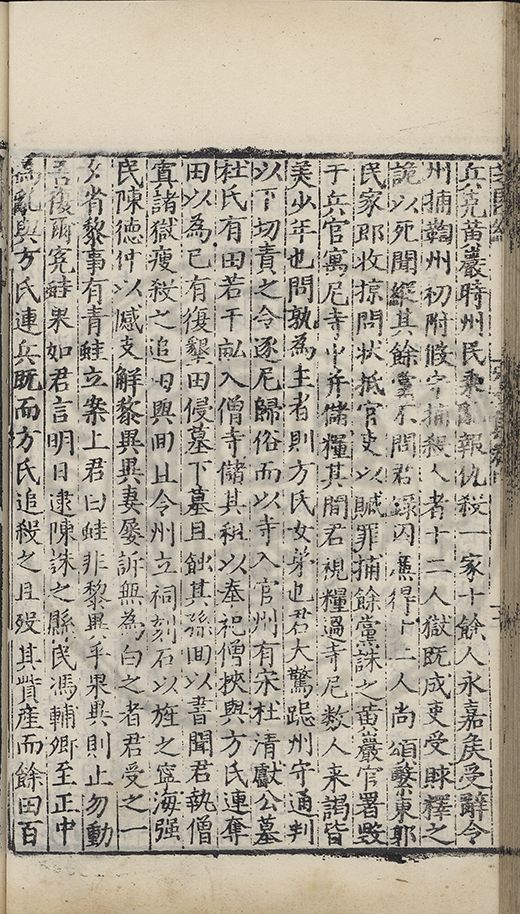 兵克黃巖時州民乘亂報仇殺一家十餘人永嘉侯受辭令
州捕鞫州初附假守捕殺人者十二人獄既成吏受賕釋之
詭以死聞縱其餘黨不問君錄囚廉得十二人尚頌繫東郭
民家即收掠問狀抵官吏以贓罪捕餘黨誅之黃巖官署毀
于兵官寓尼寺中并儲糧其間君視糧過寺尼數人来謁皆
美少年也問孰為主者則方氏女弟也君大驚跪州守通判
以下切責之令逐尼歸俗而以寺入官州有宋杜清獻公墓
杜氏有田若干畝入僧寺儲其租以奉祀僧挾與方氏連奪
田以為己有復墾田侵墓下墓且蝕其孫間以書聞君執僧
寘諸獄瘦殺之追田與間且令州立祠刻石以旌之寧海强
民陳德仲以憾支解黎異異妻屢訴無為白之者君受之一
夕省黎事有青蛙立案上君曰蛙非黎異乎果異則止勿動
吾復爾冤蛙果如君言明日逮陳誅之縣民馮輔卿至正中
為亂與方氏連兵既而方氏追殺之且歿其貲產而餘田百